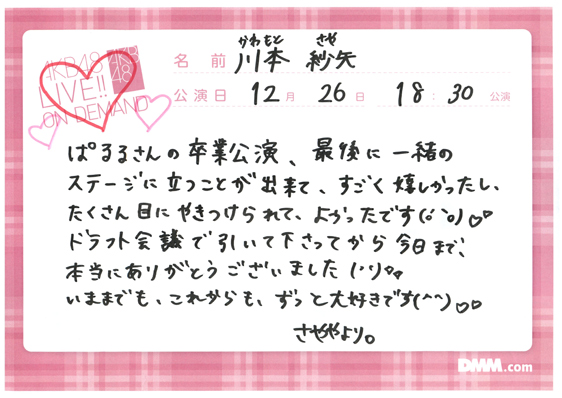 AKB48
LIVE!!
ON DEMAND
AKB
48
かわもと さや
名前 川本 紗矢
公演日 12月 26日 18:30 公演
ぱるるさんの卒業公演、最後に一緒の
ステージに立つことが出来て、すごく嬉しかったし、
たくさん目にやきつけられて、よかったです(
ドラフト会議で引いて下さってから今日まで、
本当にありがとうございました
いままでも、これからも、ずっと大好きです(^^)♡♡
さややより。
DMM.com